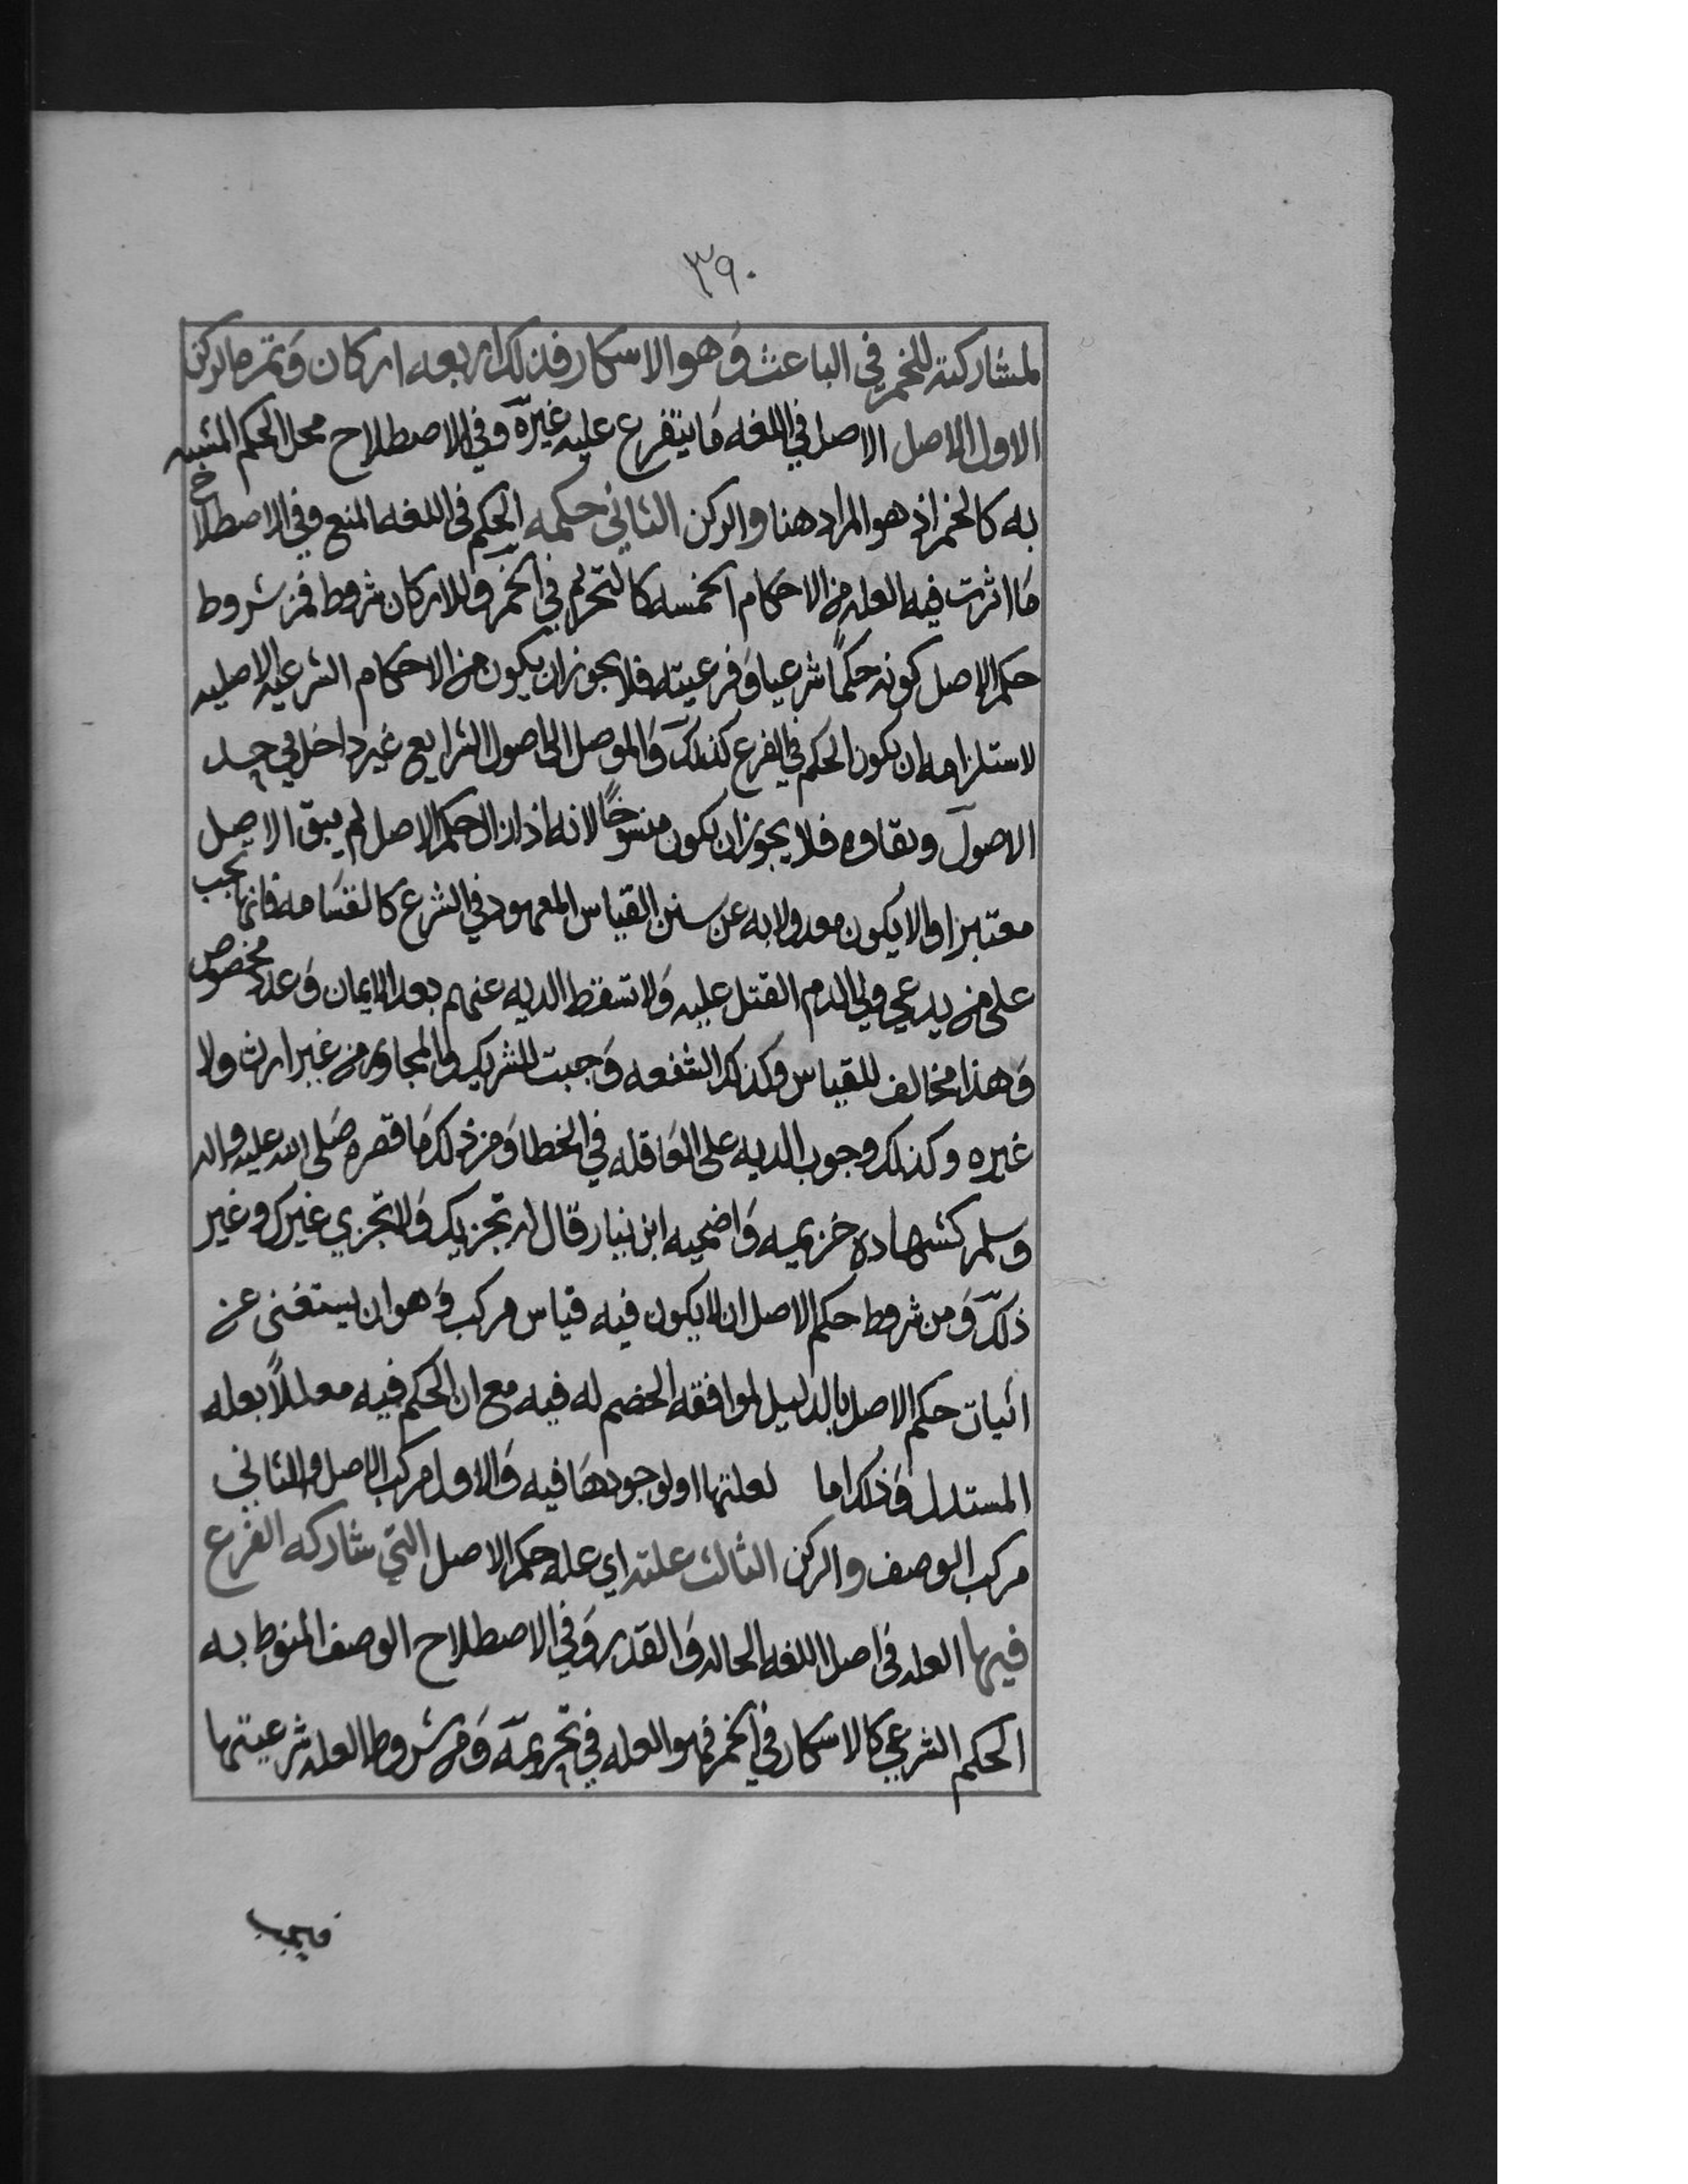 ٣٩٠
لمشاركته للخمر في الباعث وهو الاسكار فذلك اربعه اركان وتمره الركن
الاول الاصل الاصل في اللغه ما يتفرع عليه غيره وفي الاصطلاح محل الحكم المشبه
به كالخمر اذ هو المراد هنا والركن الثاني حكمه الحكم في اللغه المنع وفي الاصطلاح
ما اثرت فيه العله من الاحكام الخمسه كالتحريم في الخمر وللاركان شروط فمن شروط
حكم الاصل كونه حكمًا شرعيا وفرعيته فلا يجوز ان يكون من الاحكام الشرعيه الاصليه
لاستلزامه ان يكون الحكم في الفرع كذلك والموصل الى اصول الشرايع غير داخل في حد
الاصول وبقاوه فلا يجوز ان يكون منسوخًا لانه اذا زال حكم الاصل لم يبق الاصل
معتبرا والا يكون معدولا به عن سنن القياس المعهود في الشرع كالقسامه فانها تجب
على من يدعي ولي الدم القتل عليه ولا تسقط الديه عنهم بعد الايمان وعدد مخصوص
وهذا مخالف للقياس وكذلك الشفعه وجبت للشريك والمجاور من غير ارث ولا
غيره وكذلك وجوب الديه على العاقله في الخطا ومن ذلك ما قصره صلى الله عليه واله
وسلم كشهاده خزيمه واضحيه ابن نيار قال له تجزيك ولا تجزي غيرك وغير
ذلك ومن شروط حكم الاصل ان لا يكون فيه قياس مركب وهو ان يستغنى عن
اثبات حكم الاصل بالدليل لموافقه الخصم له فيه مع ان الحكم فيه معللًا بعله
المستدل وذلك اما لعلتها او لوجودها فيه والاول مركب الاصل والثاني
مركب الوصف والركن الثالث علته اي عله حكم الاصل التي شاركه الفرع
فيها العله في اصل اللغه الحاله والقدر وفي الاصطلاح الوصف المنوط به
الحكم الشرعي كالاسكار في الخمر فهو العله في تحريمه ومن شروط العله شرعيتها
فيجب